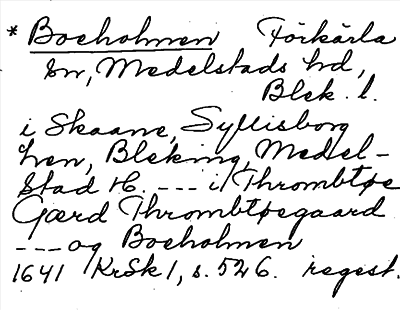 * Boeholmen Förkärla
sn, Medelstads hd,
Blek. l.
i Skaane, Syllisborg
Len, Bleking, Medel-
Stad H. --- i Thrombtøe
Gærd Thrombtøegaard
--- og Boeholmen
1641 KrSk 1, s. 526. regest.